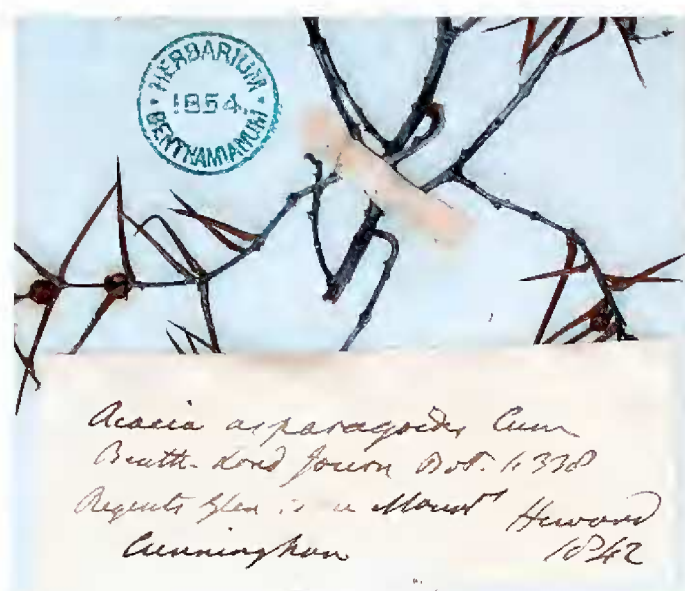 HERBARIUM
1854.
BENTHAMIANUM
Acacia asparagoides Cunn
Benth. Lond Journ Bot. 1.338
Regents Glen Mount
Heward
Cunningham 1842